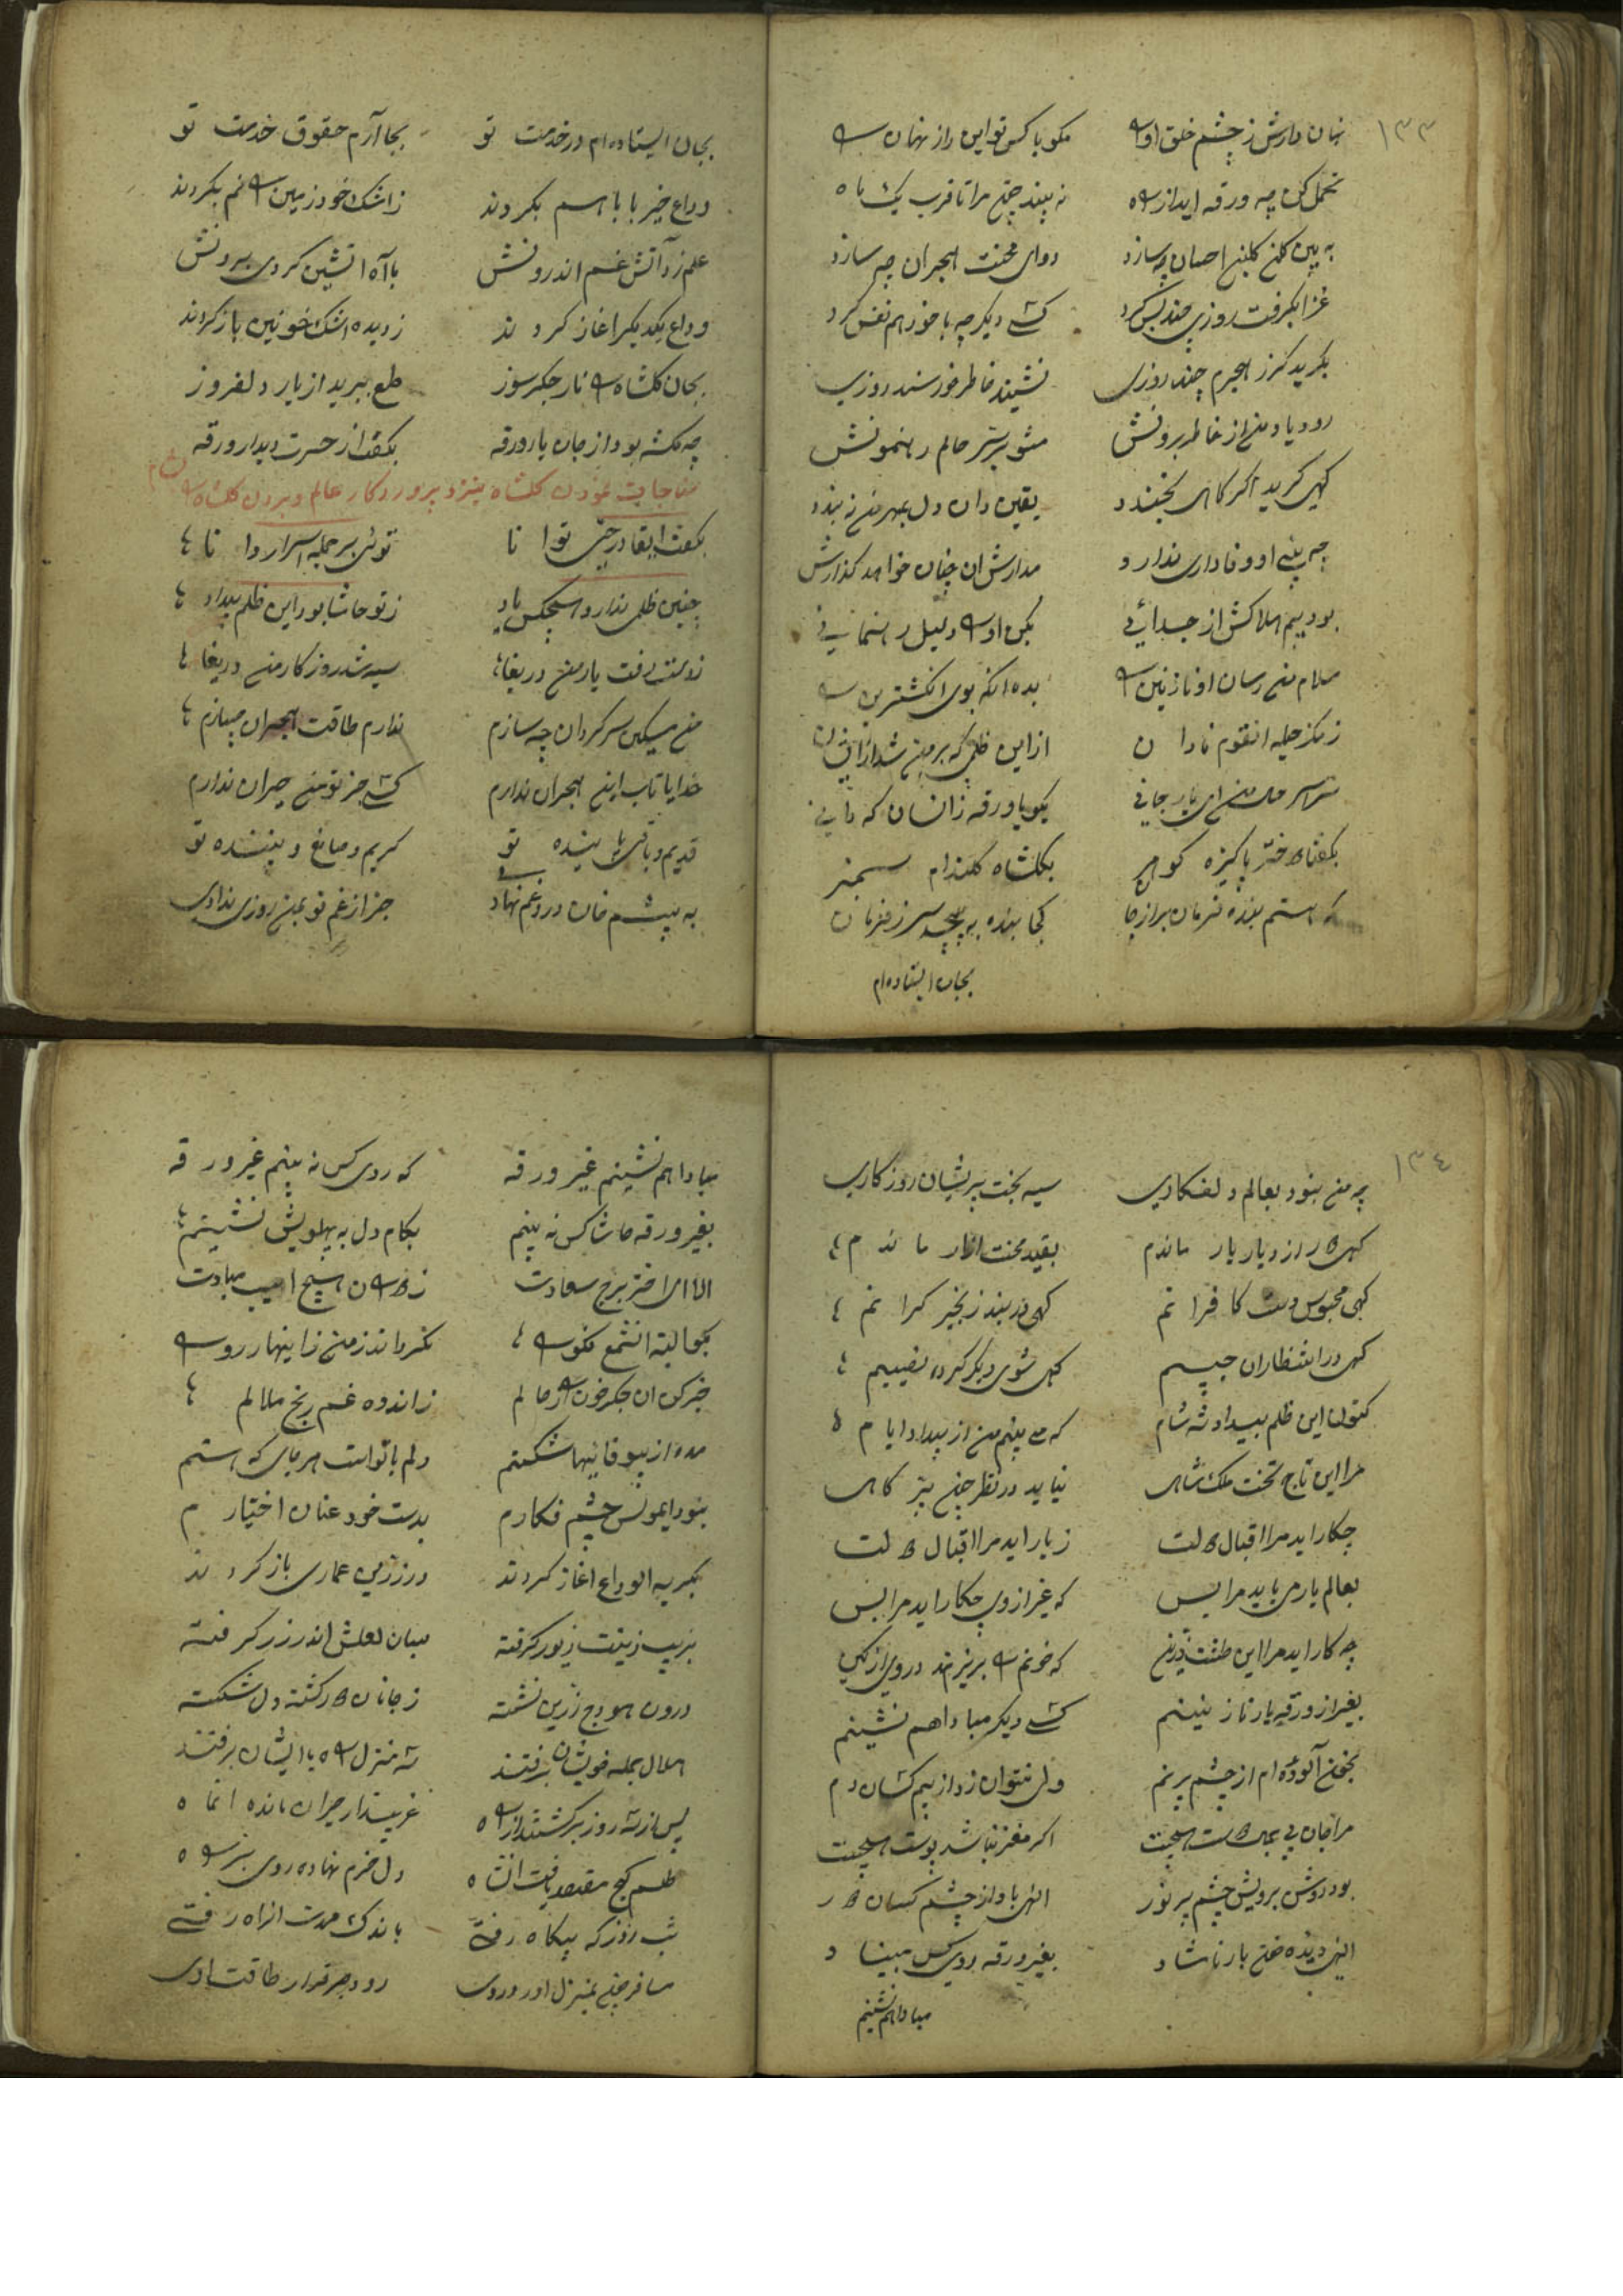 ۱۳۳
نهان دارش ز چشم خلق او را مکو با کس تو این راز نهان را
تحمل کن چه ورقه اید از راه نه بیند چون مرا تا قرب یک ماه
به بین کلبن احسان چه سازد دوای محنت هجران چه سازد
عزا بکرفت روزی چند بس کرد کسی دیکر چه با خود هم نفس کرد
بکرید کز هجرم چند روزی نشیند خاطر خورسند روزی
رود یاد من از خاطر برونش مشو بر سر حالم رهنمونش
کهی کرید اکر کاهی بخندد یقین دان دل بمهر من نه بندد
چه بینی او وفاداری ندارد مدارش ان چنان خواهد کذارش
بود بیم هلاکش از جدائی بکن او را دلیل رهنمائی
سلام من رسان او نازنین را بده انکه بوی انکشترین را
ز مکر حیله انقوم نادان از این ظلمی که بر من شد از ایشان
سراسر حال من ای یار جانی بکو با ورقه زانسان که دانی
بکفتا دختر پاکیزه کوهر بکلشاه کلندام سمنبر
که هستم بنده فرمان بر از جا کجا بنده به پیچد سر ز فرمان
بجان ایستاده ام
بجان ایستاده ام در خدمت تو بجا آرم حقوق خدمت تو
وداع خیر با باهم بکردند ز اشک خود زمین را نم بکردند
علم زد آتش غم اندرونش با آه اتشین کردی برونش
وداع یکدیکر اغاز کردند ز دیده اشک خونین باز کردند
بجان کلشاه را نار جکر سوز طمع ببرید از یار دلفروز
چه مکشه بود از جان یار ورقه بکفت از حسرت دیدار ورقه
مناجات نمودن کلشاه بنزد پروردکار عالم و بردن کلشاه را بشام
بکفت ایقادر حی توانا توئی بر جمله اسرار دانا
چنین ظلمی ندارد هیچکس یاد ز تو حاشا بود این ظلم بیداد
ز دستم رفت یار من دریغا سیه شد روزکار من دریغا
من مسکین سر کردان چه سازم ندارم طاقت هجران چسازم
خدایا تاب این هجران ندارم کسی جز تو من حیران ندارم
قدیم و باقی پاینده تو کریم و صانع و بیننده تو
به پیشم خان درد و غم نهادی جز از غم تو بمن روزی ندادی
۱۳٤
چه من نبود بعالم دلفکاری سیه بخت پریشان روزکاری
کهی دور از دیار یار ماندم بقید محنت اغیار ماندم
کهی محبوس دست کافرانم کهی در بند زنجیر کرانم
کهی در انتظاران حبیبم کهی شوی دیکر کرده نصیبم
کنون این ظلم بیداد شه شام که می بینم من از بیداد ایام
مرا این تاج تخت ملک شاهی نیاید در نظر چون پر کاهی
چکار اید مرا اقبال دولت ز یار اید مرا اقبال دولت
بعالم یار می باید مرا بس که غیر از وی چکار اید مرا بس
چه کار اید مرا این طشت زرین که خونم را بریزند در وی از کین
بغیر از ورقه یار نازنینم کسی دیکر مبادا هم نشینم
بخون آلوده ام از چشم پر نم ولی نتوان زد از بیم کسان دم
مرا جان بی جمال دوست هیچست اکر مغز نباشد پوست هیچست
بود روشن برویش چشم پر نور الهی باد از چشم کسان دور
الهی دیده من بار ناشاد بغیر ورقه روی کس مبیناد
مبادا هم نشینم
مبادا هم نشینم غیر ورقه که روی کس نه بینم غیر ورقه
بغیر ورقه حاشا کس نه بینم بکام دل به پهلویش نشینم
الا ای اختر برج سعادت ز دوران هیچ اسیب مبادت
بکو البته انشمع نکو را نکرداند ز من زاینهار رو را
خبر کن ان جکر خون را ز حالم ز اندوه غم رنج ملالم
مده از بیوفائیها شکستم دلم با تو است هر جای که هستم
نبود ایمونس چشم فکارم بدست خود عنان اختیارم
بکریه الوداع اغاز کردند در زرین عماری باز کردند
بزیب زینت زیور کرفته میان لعلش اندر زر کرفته
درون هودج زرین نشسته ز جانان دور کشته دل شکسته
هلال جمله خویشان برفتند سه منزل راه با ایشان برفتند
پس از سه روز برکشتند از راه غریب زار حیران مانده انماه
طلسم کنج مقصد یافت انشاه دل خرم نهاده روی بر راه
شب روز که بیکاه رفتی باندک مدت انراه رفتی
مسافر چون بمنزل اورد روی رود صبر قرار طاقت اوی